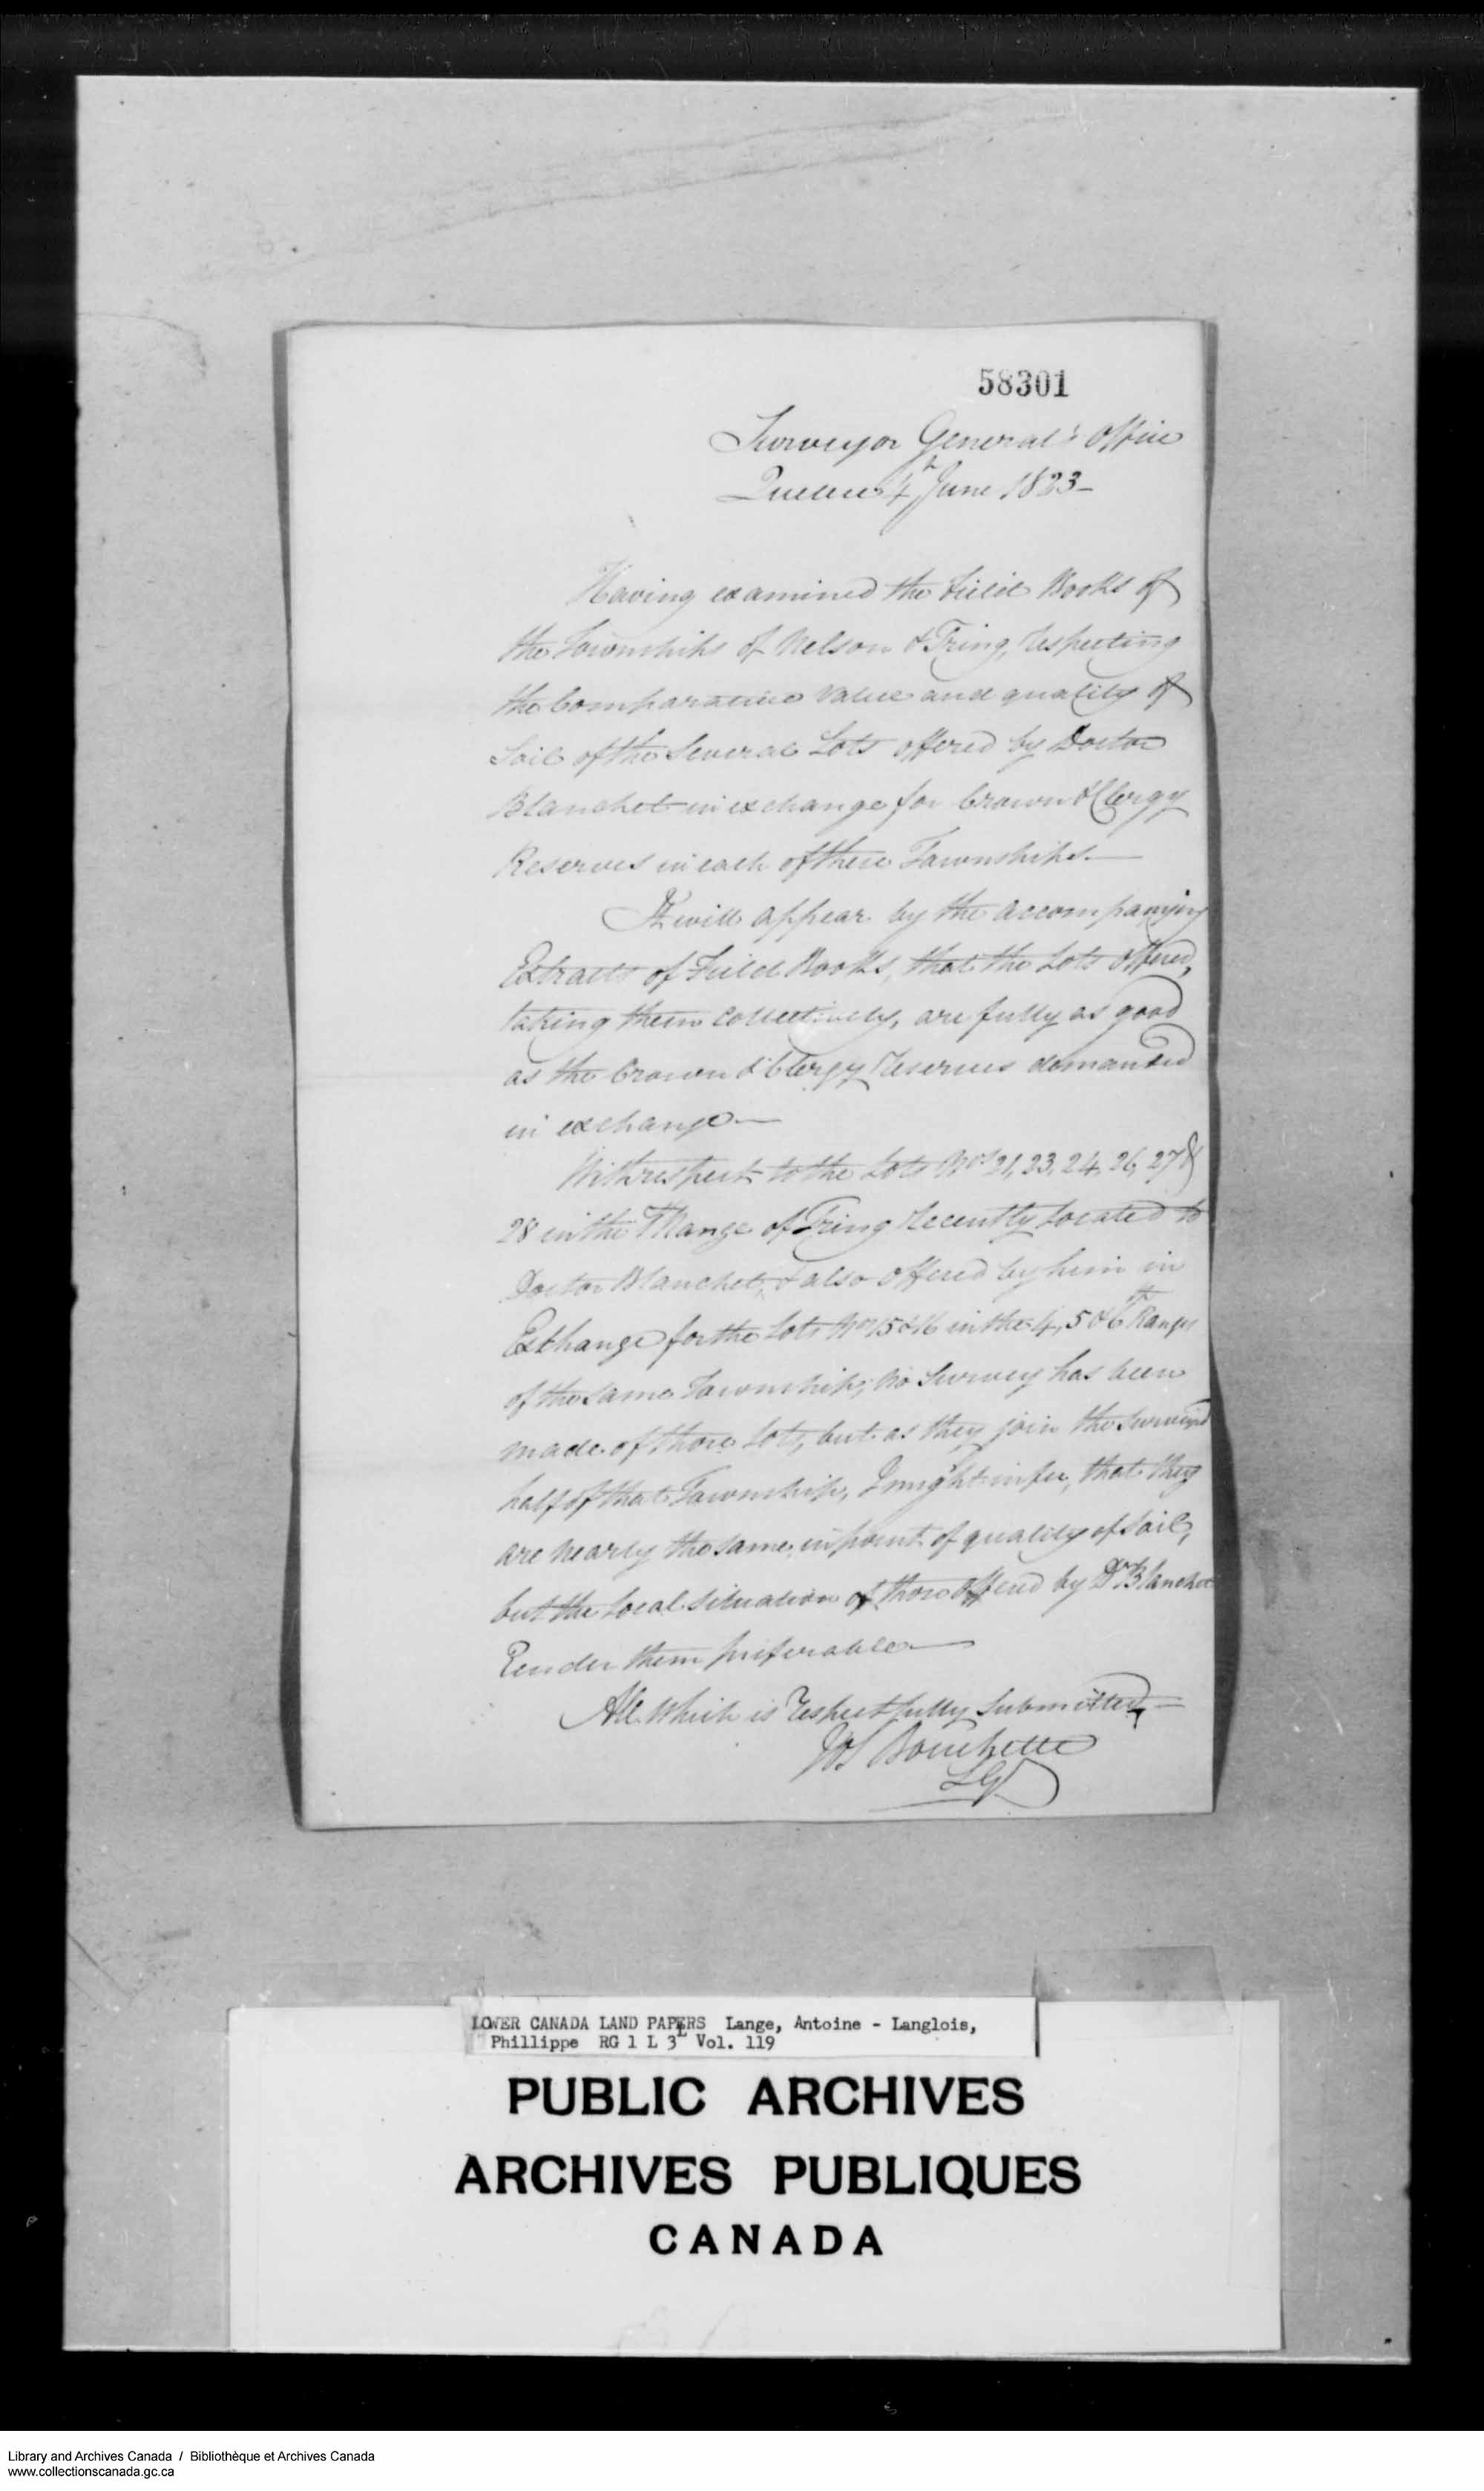 58301
Surveyor General's Office
Quebec 4th June 1823 —
Having examined the Field Books of
the Townships of Nelson & Tring, respecting
the Comparative Value and quality of
Soil of the Several Lots offered by Doctor
Blanchet in exchange for Crown & Clergy
Reserves in each of these Townships. —
It will appear by the accompanying
Extracts of Field Books, that the Lots offered,
taking them collectively, are fully as good
as the Crown & Clergy Reserves demanded
in exchange —
With respect to the Lots Nos 21, 23, 24, 26, 27 &
28 in the Range of Tring recently located to
Doctor Blanchet, & also offered by him in
Exchange for the Lots Nos 15 & 16 in the 4, 5 & 6th Ranges
of the same Township, no Survey has been
made of those Lots, but as they join the surveyed
half of that Township, I might infer, that they
are nearly the same in point of quality of Soil,
but the Local situation of those offered by Dr Blanchet
Render them preferable —
All Which is Respectfully Submitted, —
Jos Bouchette
SG
LOWER CANADA LAND PAPERS Lange, Antoine - Langlois,
Phillippe RG 1 L 3L Vol. 119
PUBLIC ARCHIVES
ARCHIVES PUBLIQUES
CANADA
Library and Archives Canada / Bibliothèque et Archives Canada
www.collectionscanada.gc.ca